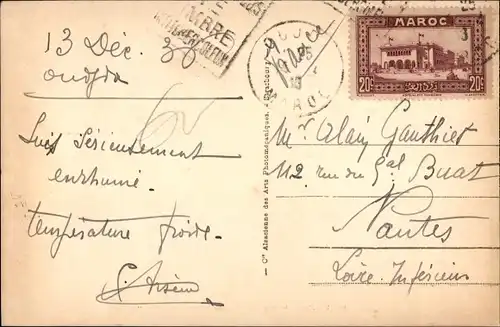 13 Déc. 36
Oudjda
Suis sérieusement
enrhumé.
température froide.
TIMBRE
MAROC
MAROC
20c 20c
Cie Alsacienne des Arts Photomécaniques, Strasbourg
Mr Alain Gauthier
112 rue du Gal Buat
Nantes
Loire Inférieure